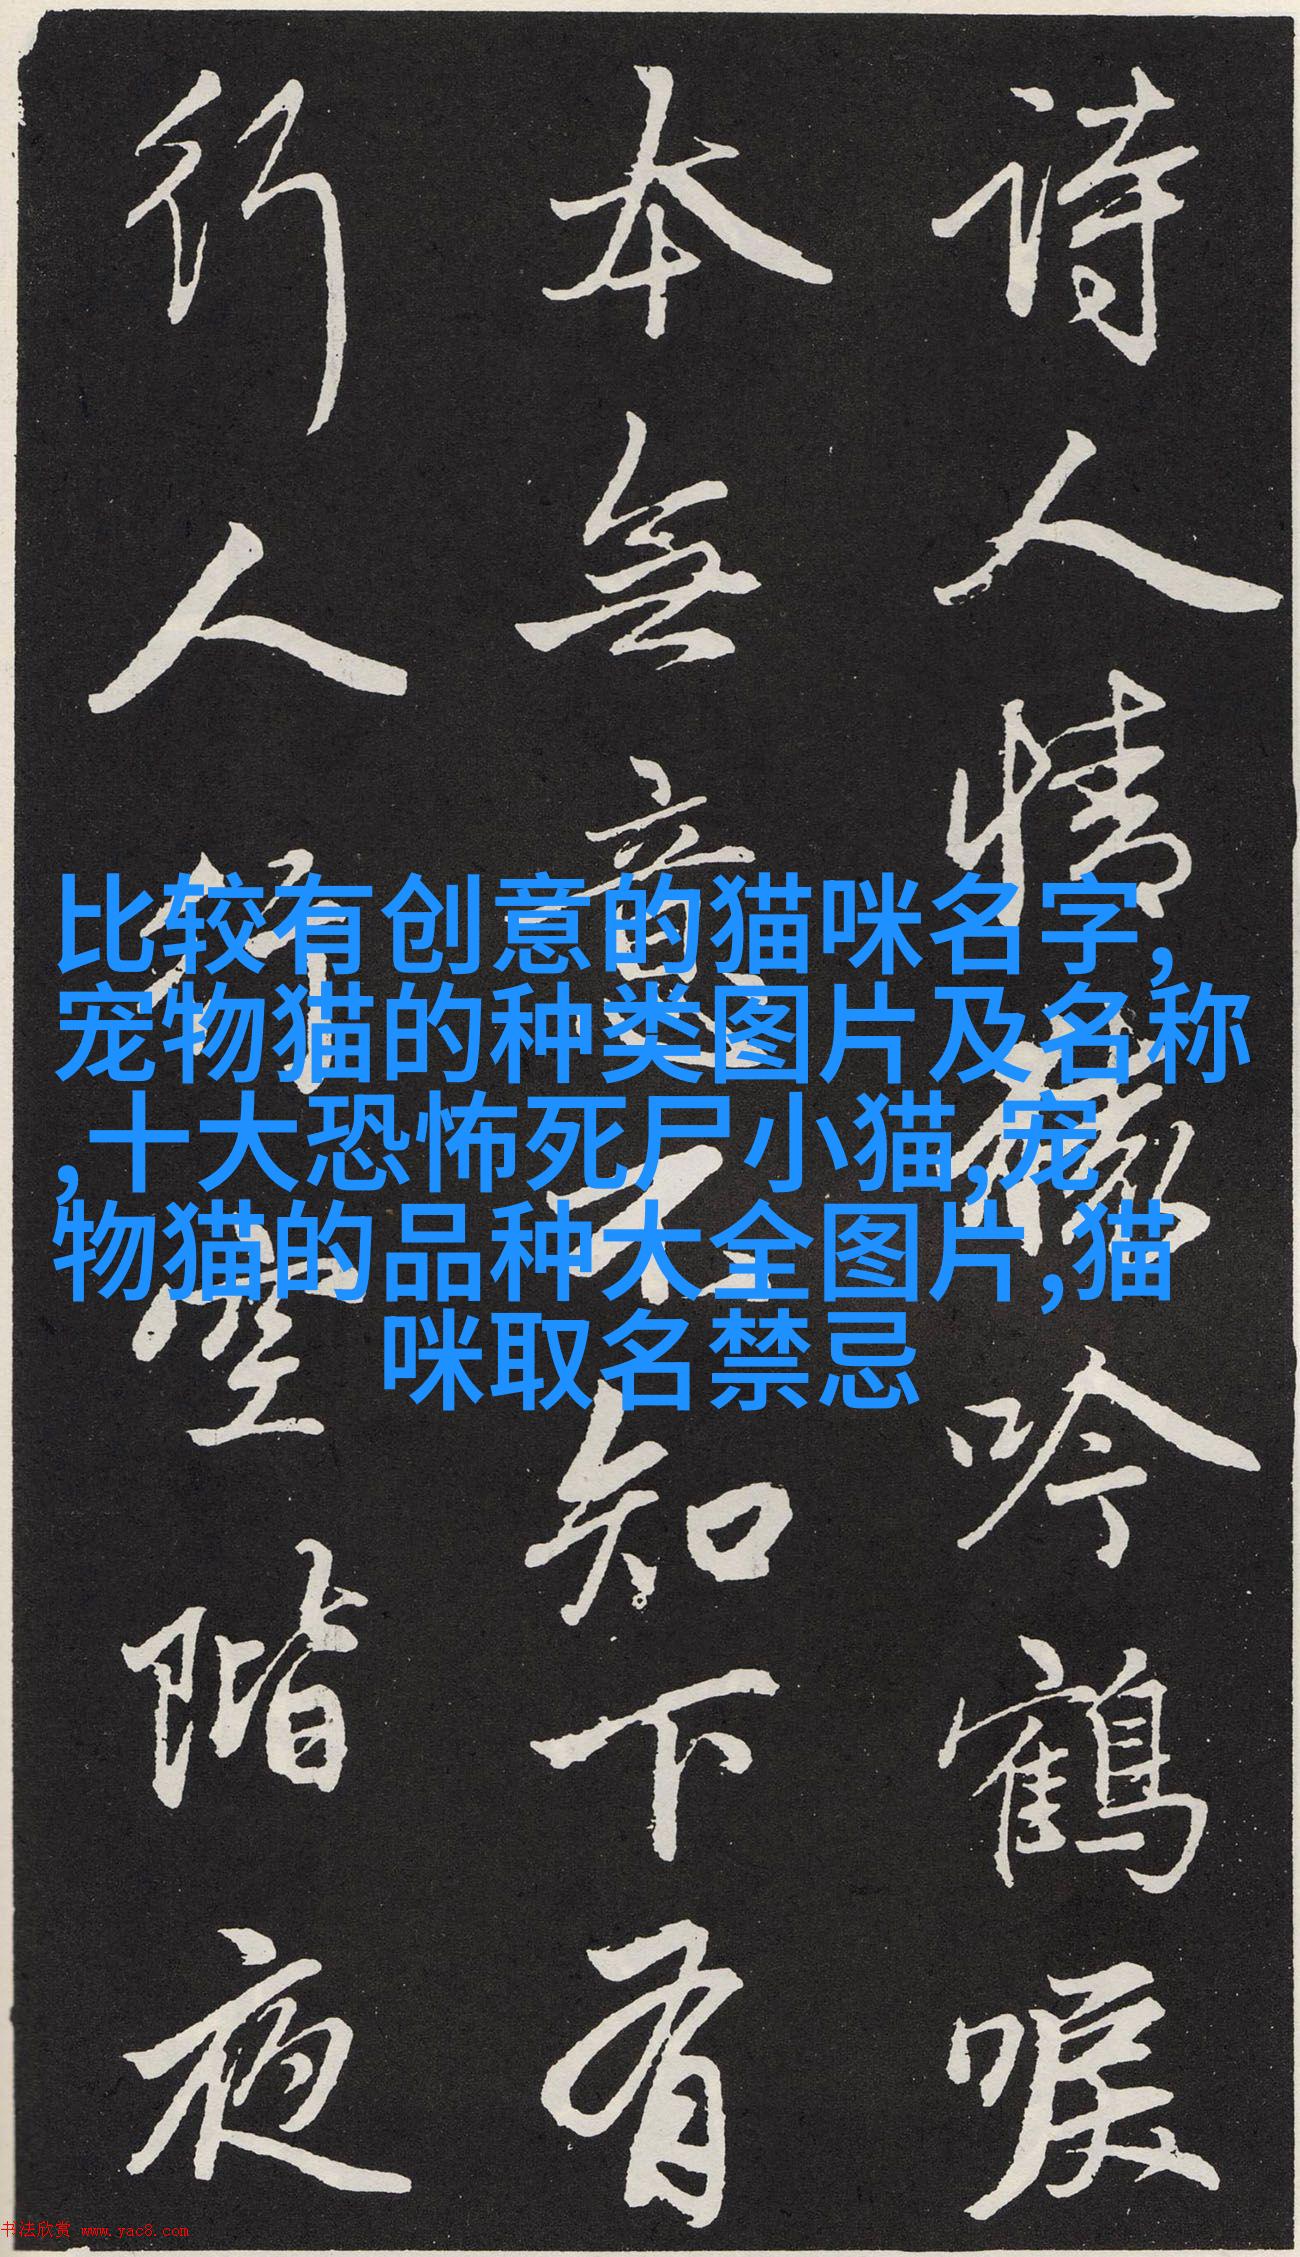 詩人情猿吟鶴唳
本無意不知下有
行人行空階夜
比较有创意的猫咪名字,
宠物猫的种类图片及名称
,十大恐怖死尸小猫,宠
物猫的品种大全图片,猫
咪取名禁忌
书法欣赏 www.yac8.com